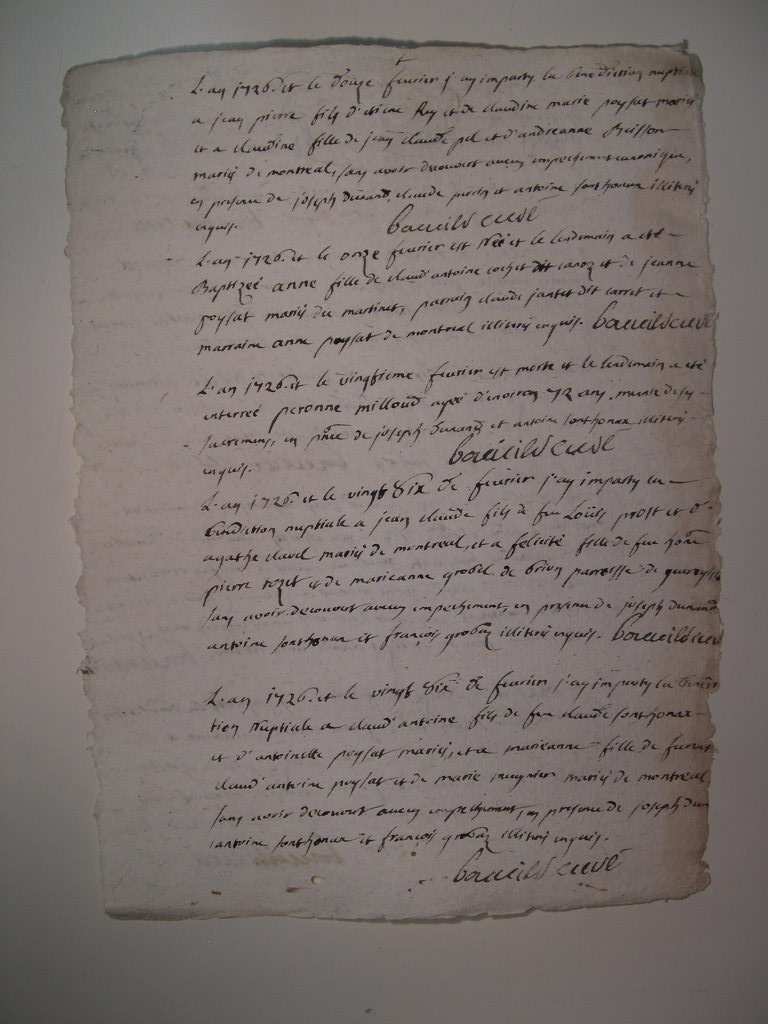 L'an 1726 et le douze fevrier j'ay imparty la benediction nuptiale
a jean pierre fils d'etiene Ruy et de claudine marie poysat mariés
et a claudine fille de jean claude pel et d'andreanne Buisson
mariés de montreal, sans avoir decouvert aucun empechement canonique,
en presence de joseph durand, claude et antoine sonthonax illiterés
enquis. bavuilod curé
L'an 1726 et le onze fevrier est née et le lendemain a eté
Baptizeé anne fille de claud' antoine cochet dit caroz et de jeanne
poysat mariés du martinet, parrain claude jantet dit carret et
marraine anne poysat de montreal illiterés enquis. bavuilod curé
L'an 1726 et le vingtieme fevrier est morte et le lendemain a eté
interreé peronne milloud ageé d'environ 72 ans, munie de ses
sacremens, en pñce de joseph durand et antoine sonthonax illiterés
enquis. bavuilod curé
L'an 1726 et le vingt six de fevrier j'ay imparty la
benediction nuptiale a jean claude fils de feu Loüis prost et d'
agathe clavel mariés de montreal, et a felicité fille de feu
pierre rozet et de marieanne grobel de brion parroisse de
sans avoir decouvert aucun empechement, en presence de joseph durand
antoine sonthonax et françois illiterés enquis. bavuilod curé
L'an 1726 et le vingt six de fevrier j'ay imparty la benedic
tion nuptiale a claud' antoine fils de feu claude sonthonax
et d'antoinette poysat mariés, et a marieanne fille de
claud' antoine poysat et de marie mugnier mariés de montreal
sans avoir decouvert aucun empechement, en presence de joseph dur
antoine sonthonax et françois illiterés enquis.
bavuilod curé